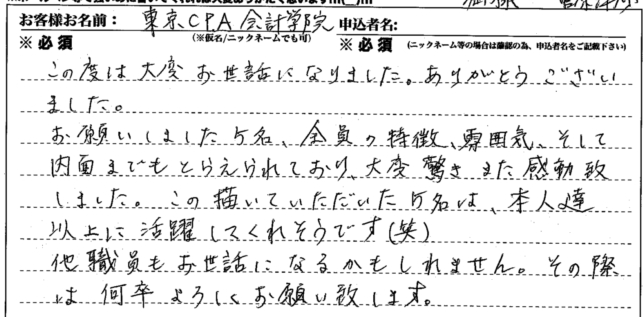 お客様お名前： 東京CPA会計学院 申込者名：
※必須 (※仮名/ニックネームでも可) ※必須 (ニックネーム等の場合は確認の為、申込者名をご記載下さい)
この度は大変お世話になりました。ありがとうござい
ました。
お願いしました5名、全員の特徴、雰囲気、そして
内面までもとらえられており、大変驚きまた感動致
しました。この描いていただいた5名は、本人達
以上に活躍してくれそうです(笑)
他職員もお世話になるかもしれません。その際
は何卒よろしくお願い致します。